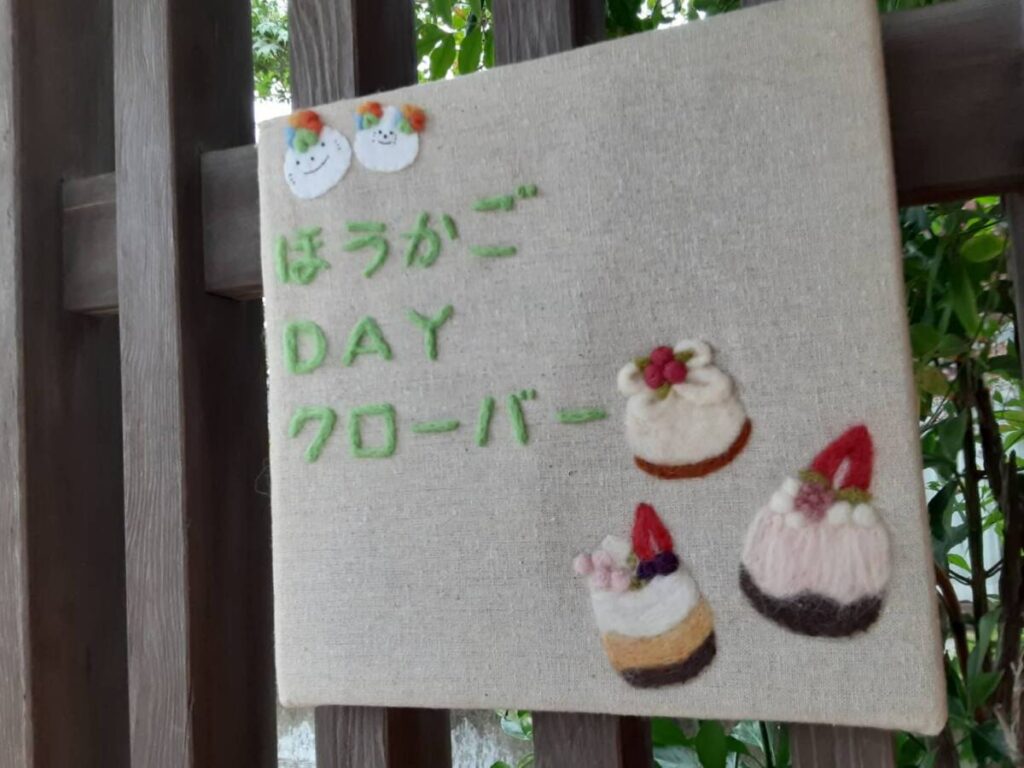 ほうかご
DAY
クローバー